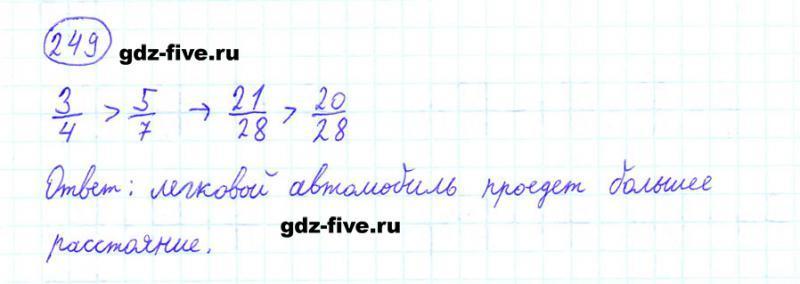 249 gdz-five.ru
3/4 > 5/7 → 21/28 > 20/28
Ответ: легковой автомобиль проедет большее
расстояние. gdz-five.ru